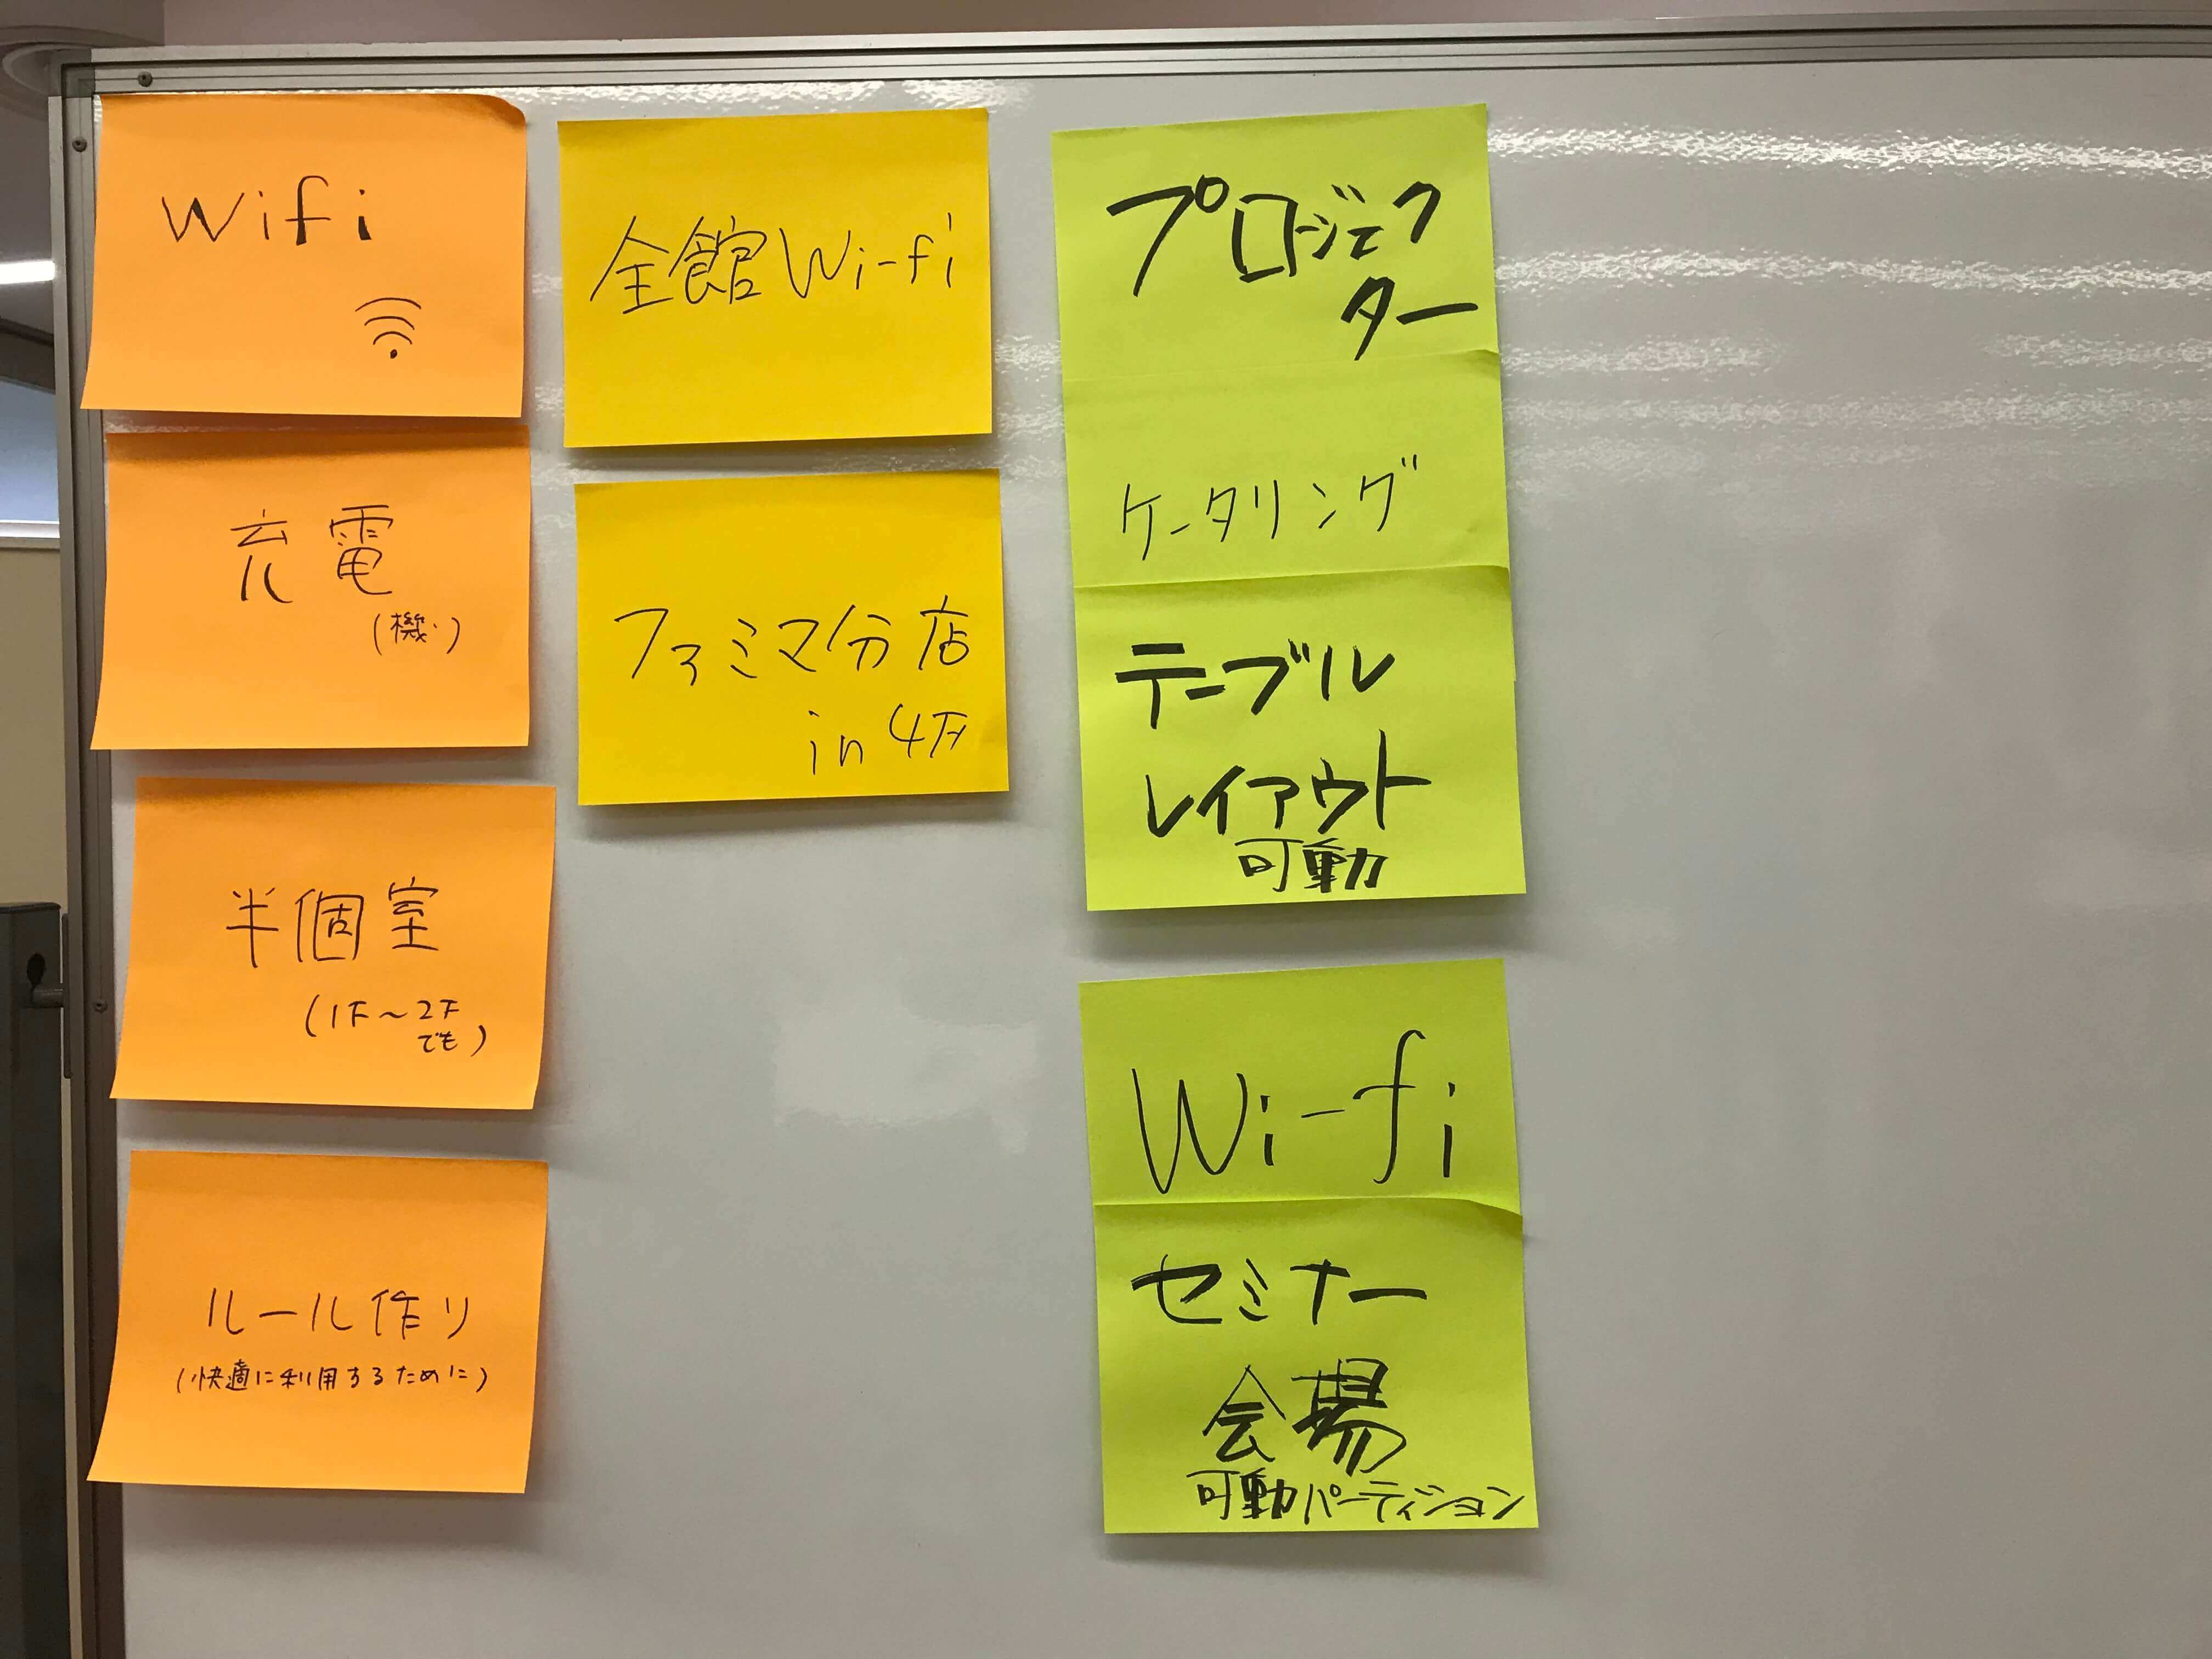 Wifi
充電
(機)
半個室
(1F～2F
でも)
ルール作り
(快適に利用するために)
全館Wi-fi
ファミマ分店
in 4F
プロジェク
ター
ケータリング
テーブル
レイアウト
可動
Wi-fi
セミナー
会場
可動パーティション